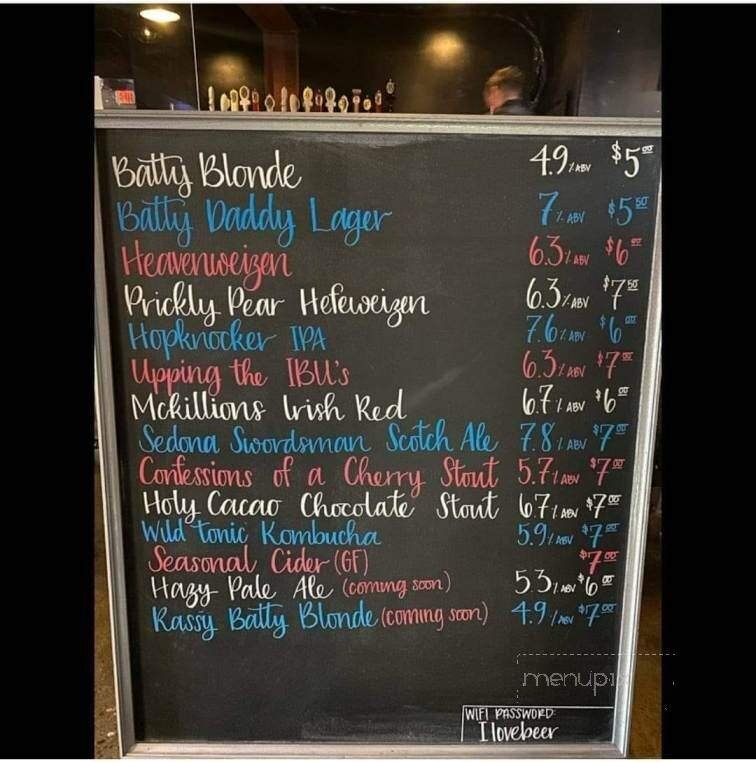 Batty Blonde 4.9% ABV $5.00
Batty Daddy Lager 7% ABV $5.50
Heavenweizen 6.3% ABV $6.00
Prickly Pear Hefeweizen 6.3% ABV $7.50
Hopknocker IPA 7.6% ABV $6.00
Upping the IBU's 6.3% ABV $7.00
McKillions Irish Red 6.7% ABV $6.00
Sedona Swordsman Scotch Ale 7.8% ABV $7.00
Confessions of a Cherry Stout 5.7% ABV $7.00
Holy Cacao Chocolate Stout 6.7% ABV $7.00
Wild Tonic Kombucha 5.9% ABV $7.00
Seasonal Cider (GF) $7.00
Hazy Pale Ale (coming soon) 5.3% ABV $6.00
Rassy Batty Blonde (coming soon) 4.9% ABV $7.00
WIFI PASSWORD:
I lovebeer